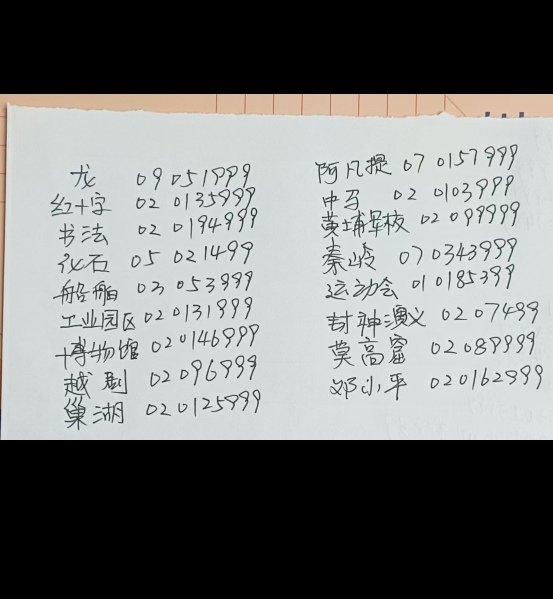 龙 09 051999
红十字 02 0135999
书法 02 0194999
化石 05 021499
船舶 03 053999
工业园区 020131999
博物馆 020146999
越剧 02096999
巢湖 020125999
阿凡提 07 0157999
中孚 02 0103999
黄埔军校 02 099999
秦岭 070343999
运动会 010185399
封神演义 0207499
莫高窟 02089999
邓小平 020162999